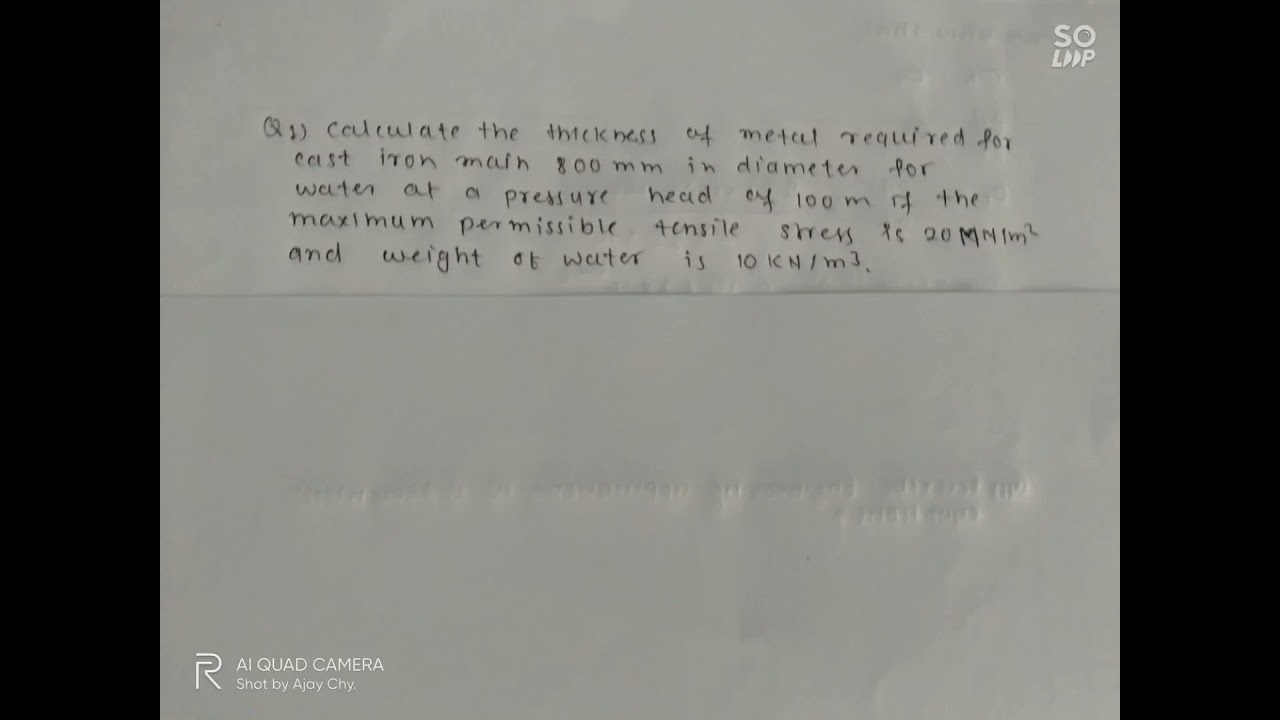 SO
LOOP
Q1) Calculate the thickness of metal required for
cast iron main 800 mm in diameter for
water at a pressure head of 100 m if the
maximum permissible tensile stress is 20 MN/m²
and weight of water is 10 KN/m³.
AI QUAD CAMERA
Shot by Ajay Chy.